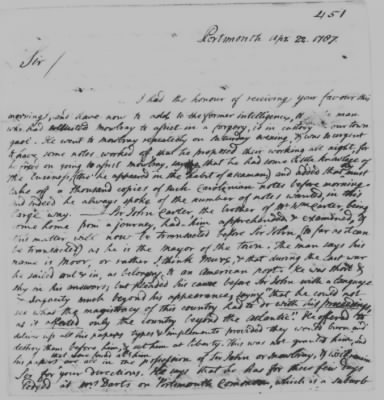 451
Portsmouth Apr. 22. 1787.
Sir /
I had the honour of receiving your favour this
morning, and have now to add to the former intelligence, that a man
who had solicited Mowbray to assist in a forgery, is in custody in our town
gaol. He went to Mowbray repeatedly on Saturday evening, & was so urgent
to have some notes worked off that he proposed their working all night, for
he tried on going to assist Mowbray, saying that he had some little knowledge of
the business, (tho' he appeared in the habit of a seaman) and added that must
take off a thousand copies of such Carolenian notes before morning
and indeed he always spoke of the number of notes wanted in this
large way. — Sir John Carter, the brother of Mr Wm Carter, being
come home from a journey, had him apprehended & examined, by
this matter will now be transacted before Sir John, (so far as it can
be transacted) as he is the Mayor of the town. The man says his
name is Moor, or rather I think Muire, & that during the last war
he sailed out & in, as belonging to an American port. He was short &
shy in his answers; but pleaded his cause before Sir John with a language
& sagacity much beyond his appearance, saying "that he could not
see what the magistracy of this country had to do with his proceedings,
as it affected only the country beyond the Atlantic." He offered to
deliver up all his papers, types & implements provided they would burn and
destroy them before him, & set him at liberty. This was not granted him, and
his papers are all in the possession of Sir John or Mowbray, & will remain
so for your directions. He says that he has for these few days
lodged at Mrs Darts on Portsmouth Common, which is a suburb